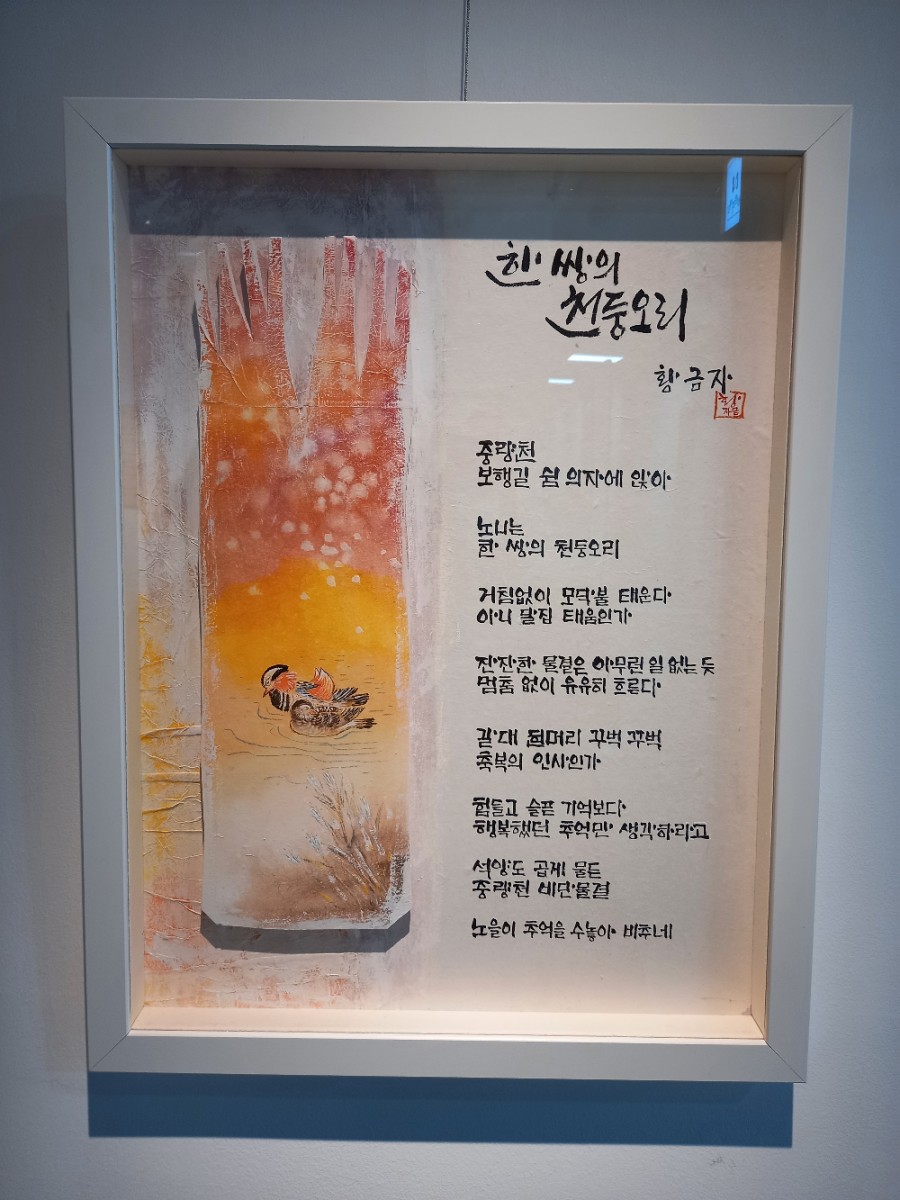 한 쌍의
천둥오리
황금자
중랑천
보행길 쉼 의자에 앉아
노니는
한 쌍의 천둥오리
거침없이 모닥불 태운다
아니 달집 태움인가
잔잔한 물결은 아무런 일 없는 듯
멈춤 없이 유유히 흐른다
갈대 흰머리 꾸벅 꾸벅
축복의 인사인가
힘들고 슬픈 기억보다
행복했던 추억만 생각하라고
석양도 곱게 물든
중랑천 비단물결
노을이 추억을 수놓아 비추네